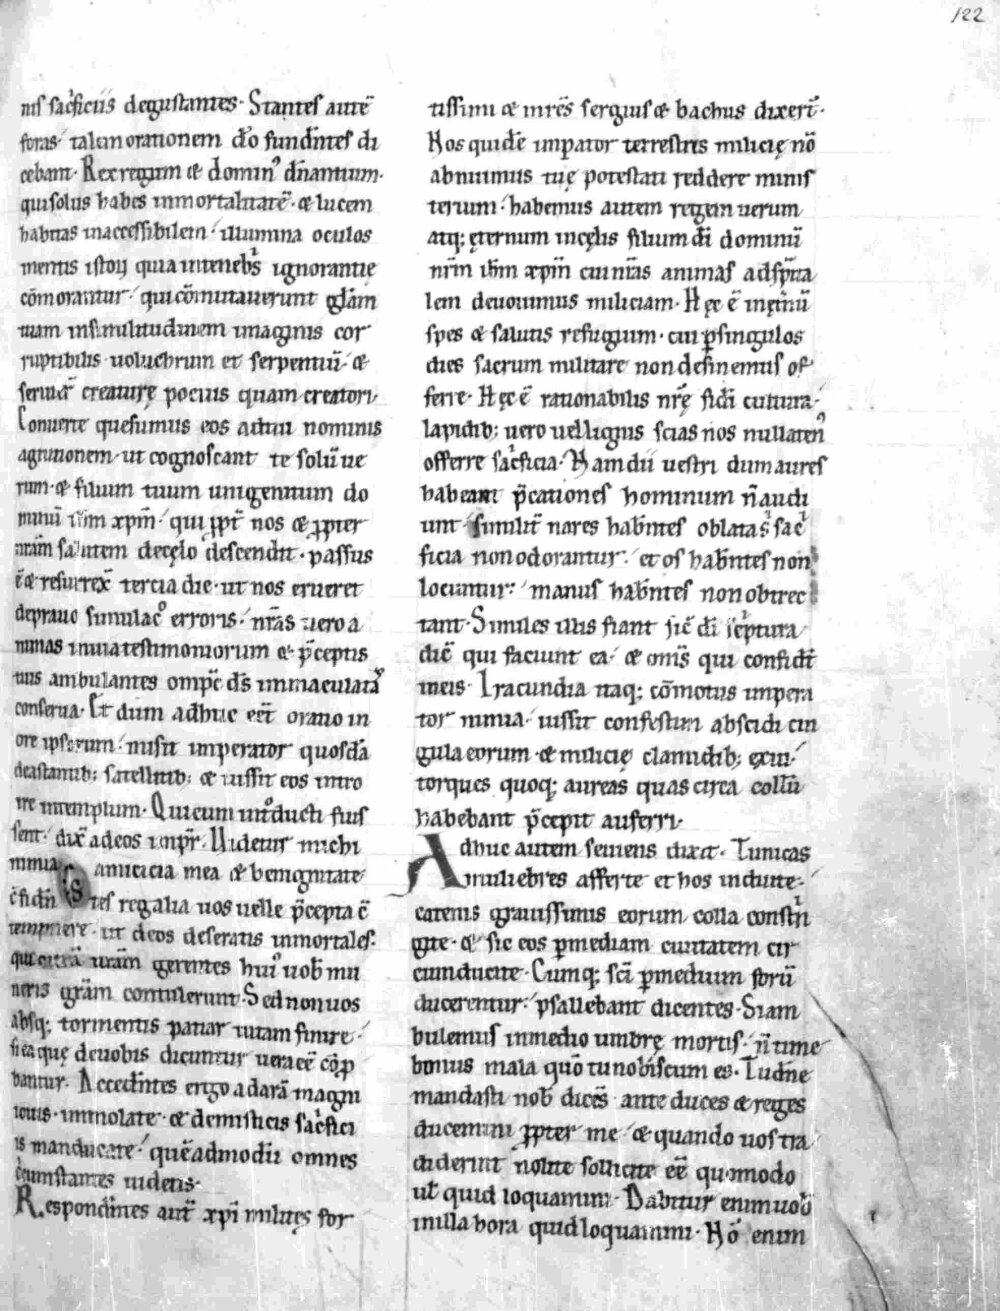 122
nis sacͥficiis degustantes· Stantes autē
foras· talem orationem d̅o fundentes di
cebant· Rex regum et dominꝰ dn̅antium·
qui solus habes inmortalitatē· et lucem
habitas inaccessibilem· illumina oculos
mentis istoꝝ quia in tenebͥs ignorantię
cōmorantur· qui cōmutauerunt glām
tuam in similitudinem imaginis cor
ruptibilis uolucrum et serpentiū· et
seruiert̅ creaturę pocius quam creatori·
Conuerte quesumus eos ad tui nominis
agnitionem· ut cognoscant te solū ue
rum· et filium tuum unigenitum do
minū ih̅m xp̅m· qui ꝓpt̅ nos et ꝓpter
nr̅am salutem de cęlo descendit· passus
ē et resurrex̅ tercia die· ut nos erueret
de prauo simulacͦ erroris· nr̅as uero a
nimas in uia testimoniorum et p̅ceptis
tuis ambulantes omp̅c d̅s immaculatas
conserua· Et dum adhuc eēt oratio in
ore ipsorum· misit imperator quosdā
de astantib; satellitib; et iussit eos intro
ire in templum· Qui cum intͦducti fuis
sent· dix̅ ad eos imp̅r· Videtur michi
nimia amicicia mea et benignitate
c̅fidentes regalia uos uelle p̅cepta c̅
tempnere· ut deos deseratis inmortales·
qui citrā ur̅am gerentes huiꝰ uob̅ mu
neris gr̅am contulerunt· Sed non uos
absq; tormentis patiar uitam finire·
si ea quę de uobis dicuntur ueracē cōp
bantur· Accedentes ergo ad arā magni
iouis· immolate· et de misticis sacͥfici
is manducate· quēadmodū omnes
cͥcumstantes uidetis·
Respondentes aut̅ xp̅i milites for
tissimi et mr̅es sergius et bachus dixer̅t·
Nos quidē imperator terrestris milicię nō
abnuimus tuę potestati reddere minis
terium· habemus autem regem uerum
atq; ęternum in cęlis filium d̅i dominū
nr̅m ih̅m xp̅m cui nr̅as animas ad sp̅ita
lem deuouimus miliciam· Hęc ē in ęternū
spes et salutis refugium· cui ꝑ singulos
dies sacrum militare non desinemus of
ferre· Hęc ē rationabilis nr̅ę fidei cultura·
lapidib; uero uel lignis scias nos nullatenꝰ
offerre sacͥficia· Nam dii uestri dum aures
habeant p̅cationes hominum n̅ audi
unt· similit̅ nares habentes oblatas sacͥ
ficia non odorantur· et os habentes non
locuntur· manus habentes non obtrec
tant· Similes illis fiant sic̅ d̅i scͥptura
dic̅ qui faciunt ea· et om̅s qui confidt̅
in eis· Iracundia itaq; cōmotus impera
tor nimia· iussit confestim abscidi cin
gula eorum· et milicię clamidib; exui·
torques quoq; aureas quas circa collū
habebant p̅cepit auferri·
Adhuc autem seuiens dixit· Tunicas
muliebres afferte et hos induite·
catenis grauissimis eorum colla constͥn
gite· et sic eos ꝑ mediam ciuitatem cir
cumducite· Cumq; sc̅i ꝑ medium forū
ducerentur· psallebant dicentes· Si am
bulemus in medio umbrę mortis· n̅ time
bimus mala quō tu nobiscum es· Tu dn̅e
mandasti nob̅ dicēs ante duces et reges
ducemini ꝓpter me· et quando uos tra
diderint nolite sollicite eē quomodo
ut̅ quid loquamini· Dabitur enim uob̅
in illa hora quid loquamini· Nō enim